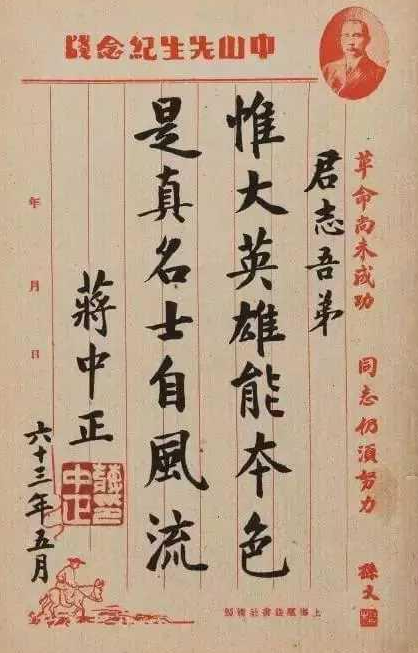 中山先生紀念牋
革命尚未成功 同志仍須努力 孫文
君志吾弟
惟大英雄能本色
是真名士自風流
蔣中正
六十三年五月
年月日
蔣中正